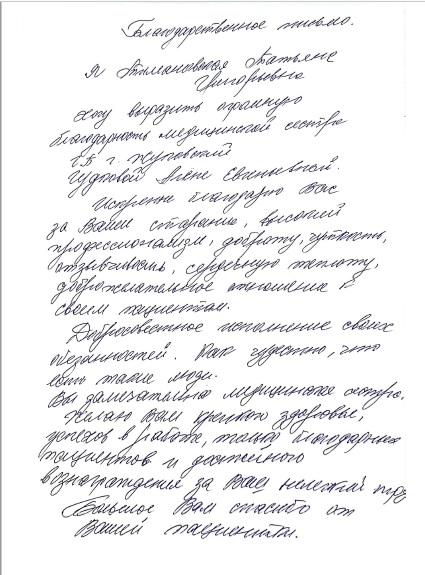 Благодарственное письмо.
Я Тимановская Татьяна
Григорьевна
хочу выразить огромную
благодарность медицинской сестре
г. Жуковский
Гудковой Алёне Евгеньевной.
Искренне благодарю Вас
за Ваши старание, высокий
профессионализм, доброту, чуткость,
отзывчивость, сердечную теплоту,
доброжелательное отношение к
своем пациентам.
Добросовестное исполнение своих
обезанностей. Как чудестно, что
есть такие люди.
Вы замечательная медицинская сестра.
Желаю Вам крепкого здоровье,
успехов в работе, только благодарных
пациентов и достойного
вознаграждения за Ваш нелегкий труд
Большое Вам спасибо от
Вашей пациентки.